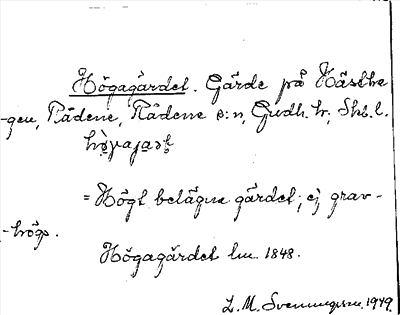 Högagärdet. Gärde på Hästha-
gen, Rådene, Rådene s:n, Gudh. h., Skb. l.
= Högt belägna gärdet; ej grav-
-högs.
Högagärdet lm. 1848.
L. M. Svenungsson. 1949.